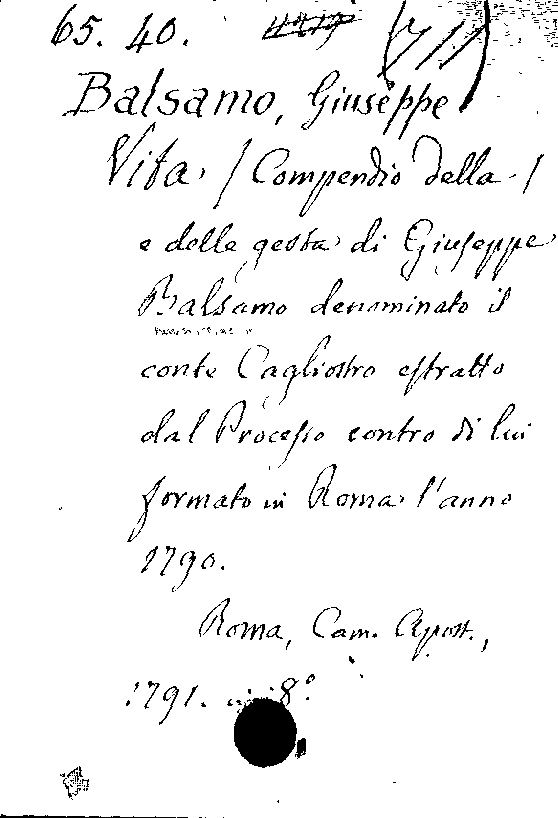 65. 40.
Balsamo, Giuseppe
Vita / Compendio della /
e delle gesta di Giuseppe
Balsamo denominato il
conte Cagliostro estratto
dal Processo contro di lui
formato in Roma l'anno
1790.
Roma, Cam. Apost.,
1791. in 8°